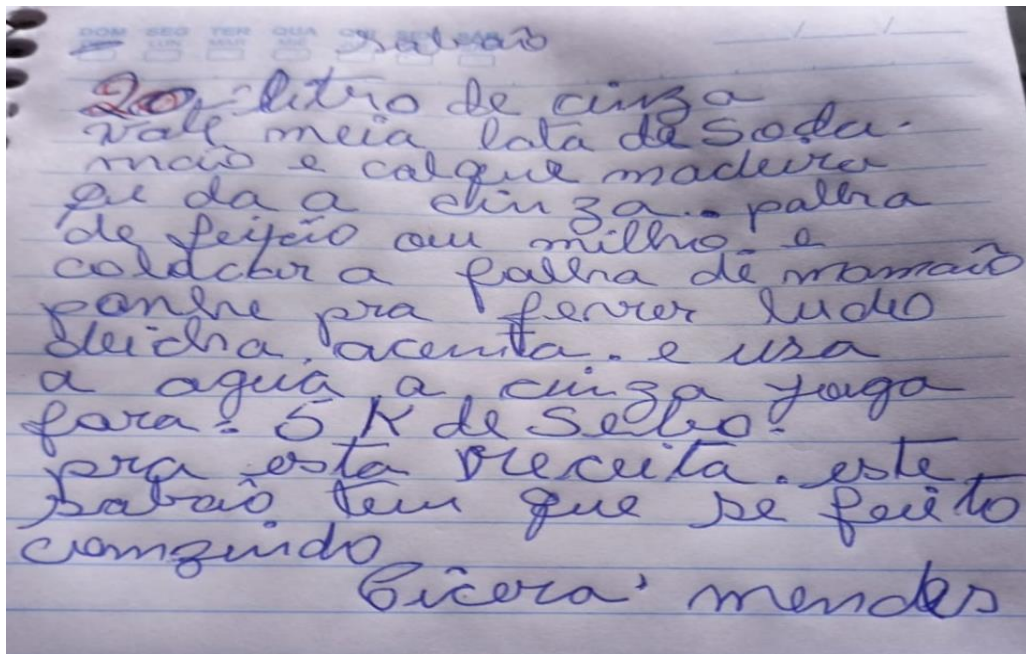 DOM SEG TER QUA
sabaõ
20, litro de cinza
vale meia lata de soda.
maõ e calque madeira
qe da a cinza. palha
de feijão ou milho. e
a palha de mamaõ
ponhe pra ferver tudo
deicha, acenta. e usa
a agua a cinza joga
fora. 5 K de Sebo.
pra esta receita. este
sabaõ tem que se feito
comzindo
Cicera mendes